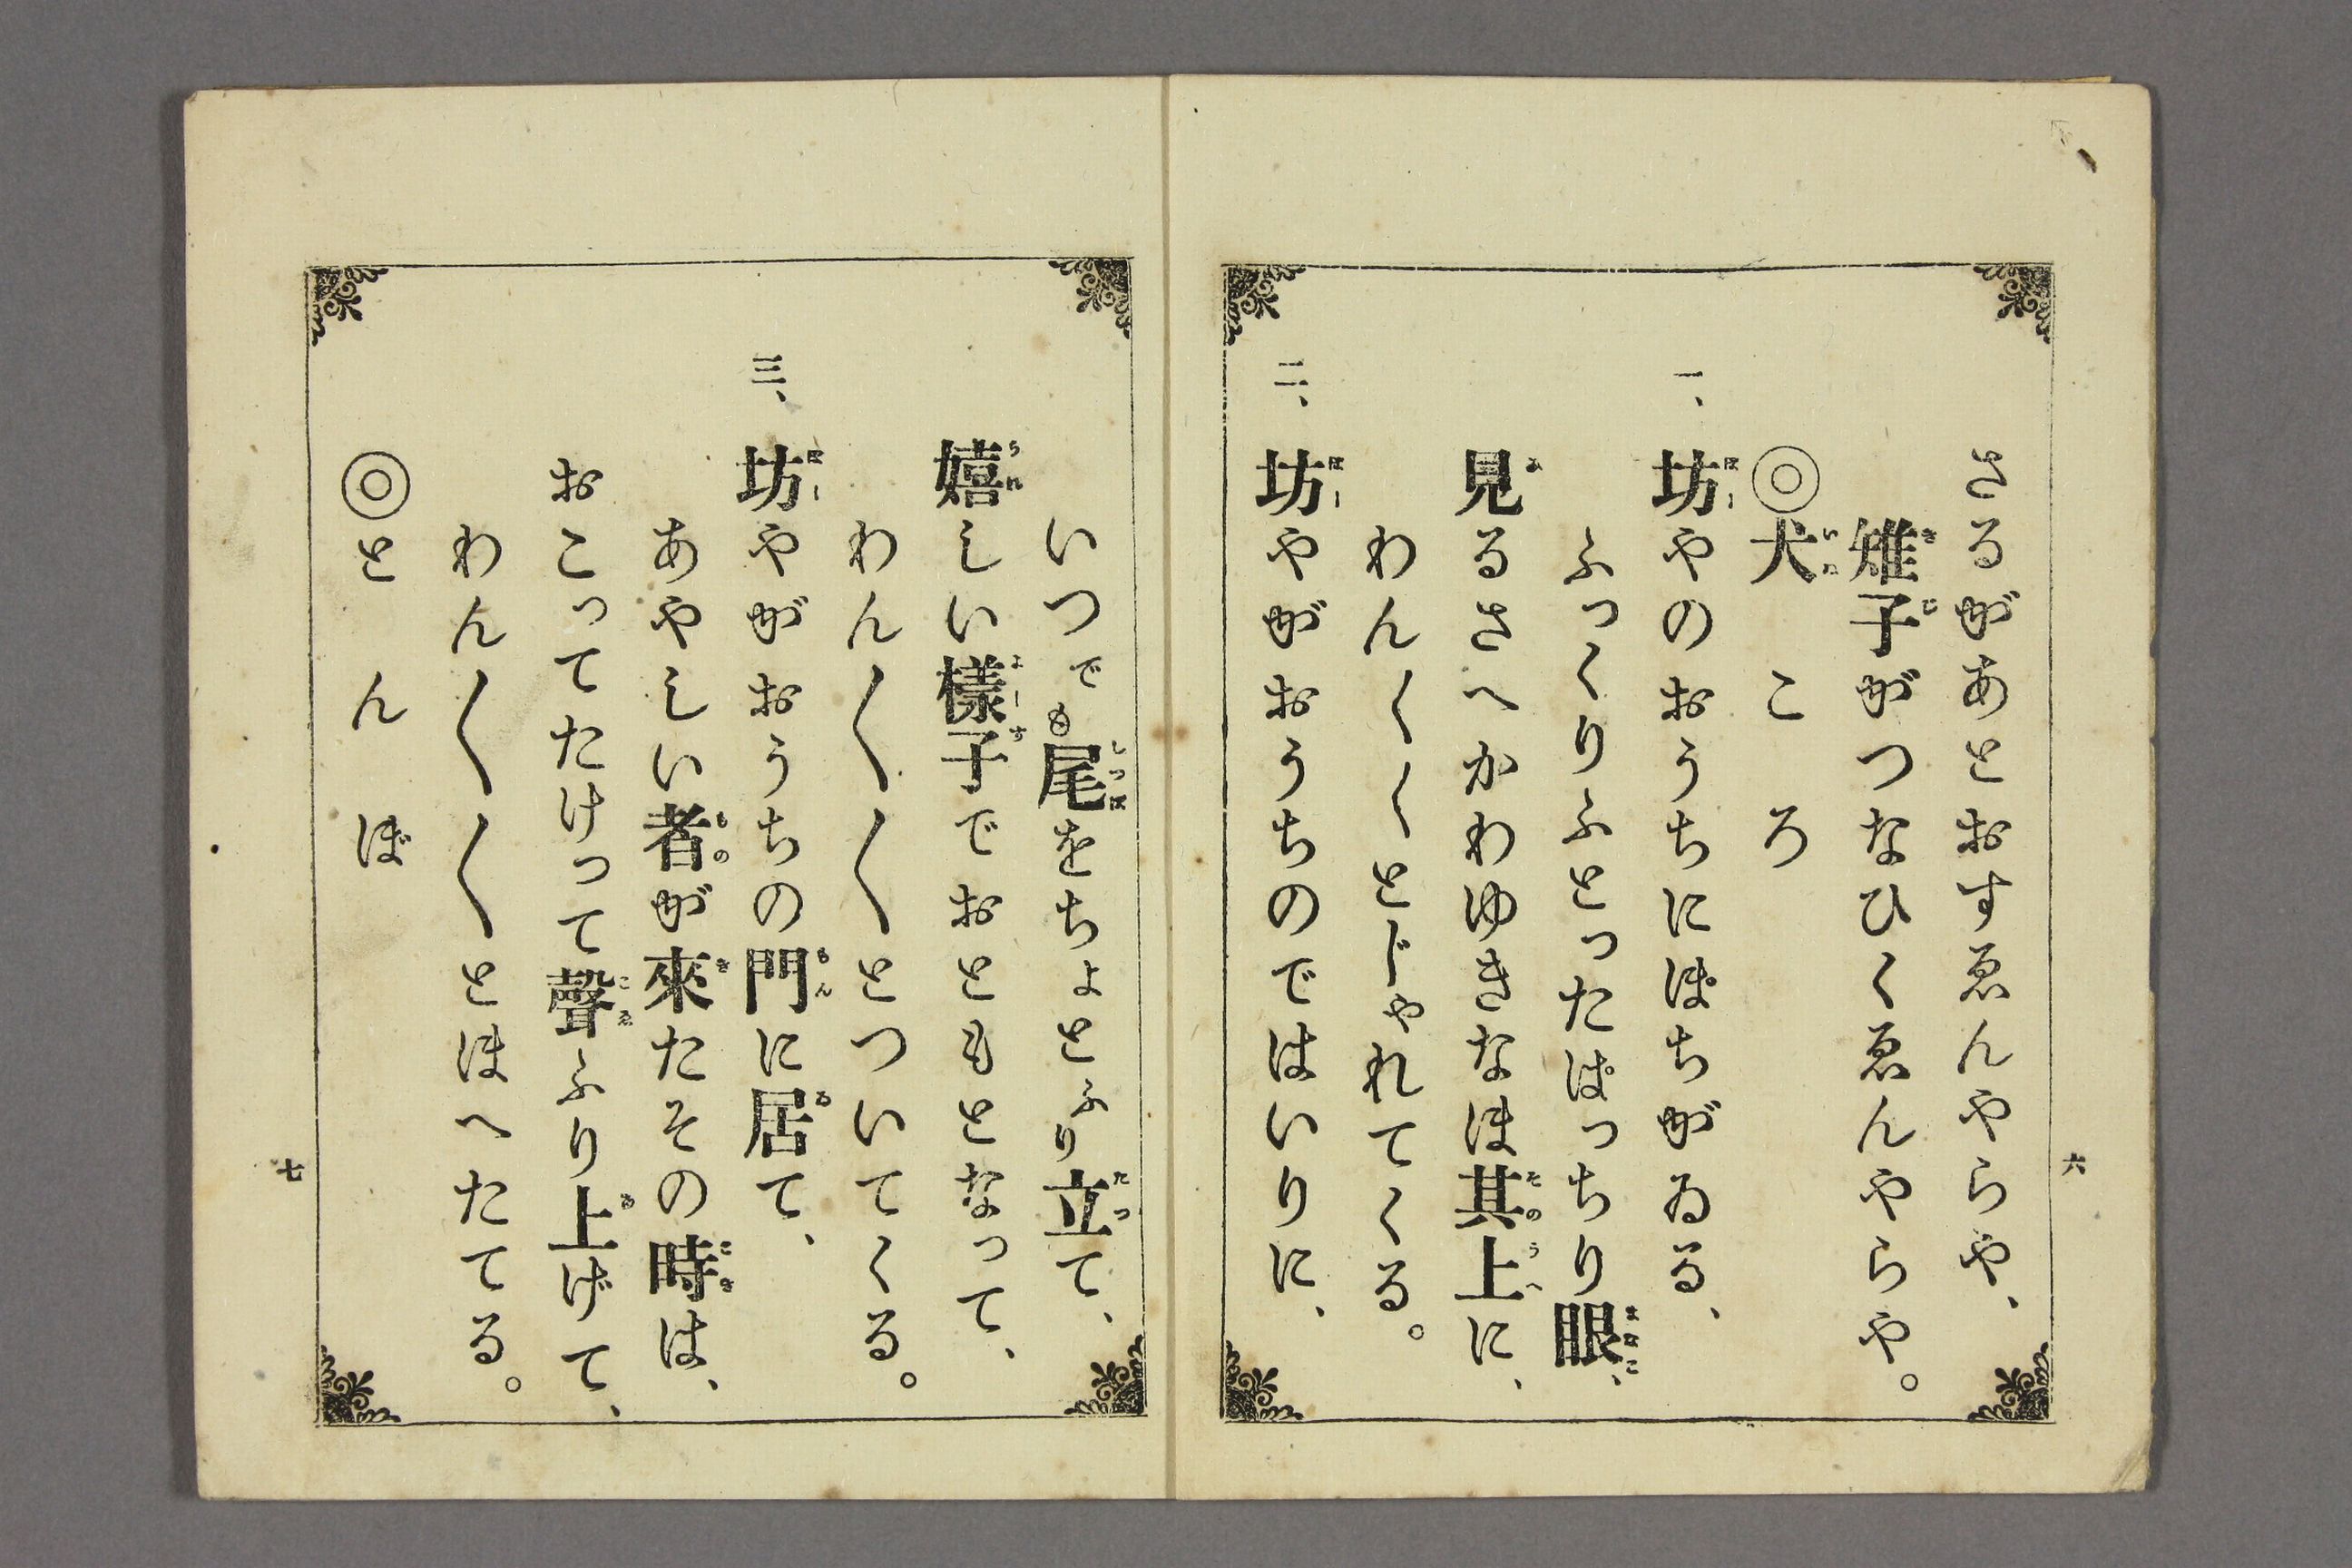 さるがあとおすゑんやらや、
雉子がつなひくゑんやらや。
◎犬ころ
一、坊やのおうちにぽちがゐる、
ふっくりふとったぱっちり眼、
見るさへかわゆきなほ其上に、
わんくくとじゃれてくる。
二、坊やがおうちのではいりに、
六
いつでも尾をちょとふり立て、
嬉しい樣子でおともとなって、
わん〳〵〳〵とついてくる。
三、坊やがおうちの門に居て、
あやしい者が來たその時は、
おこってたけって聲ふり上げて、
わん〳〵〳〵とほへたてる。
◎とんぼ
七